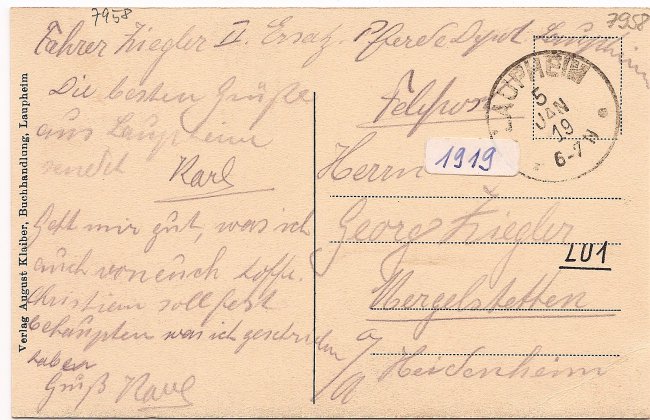 7958
7958
Fahrer Ziegler II. Ersatz Pferde Depot Laupheim
Die besten Grüße
aus Laupheim
sendet Karl
Geht mir gut, was ich
auch von euch hoffe.
Christian soll fest
behaupten was ich geschrieben
haben
Gruß Karl
Feldpost
LAUPHEIM
5
JAN
19
6-7 N
1919
Herrn
Georg Ziegler
L01
Mergelstetten
a/
Heidenheim
Verlag August Klaiber, Buchhandlung, Laupheim